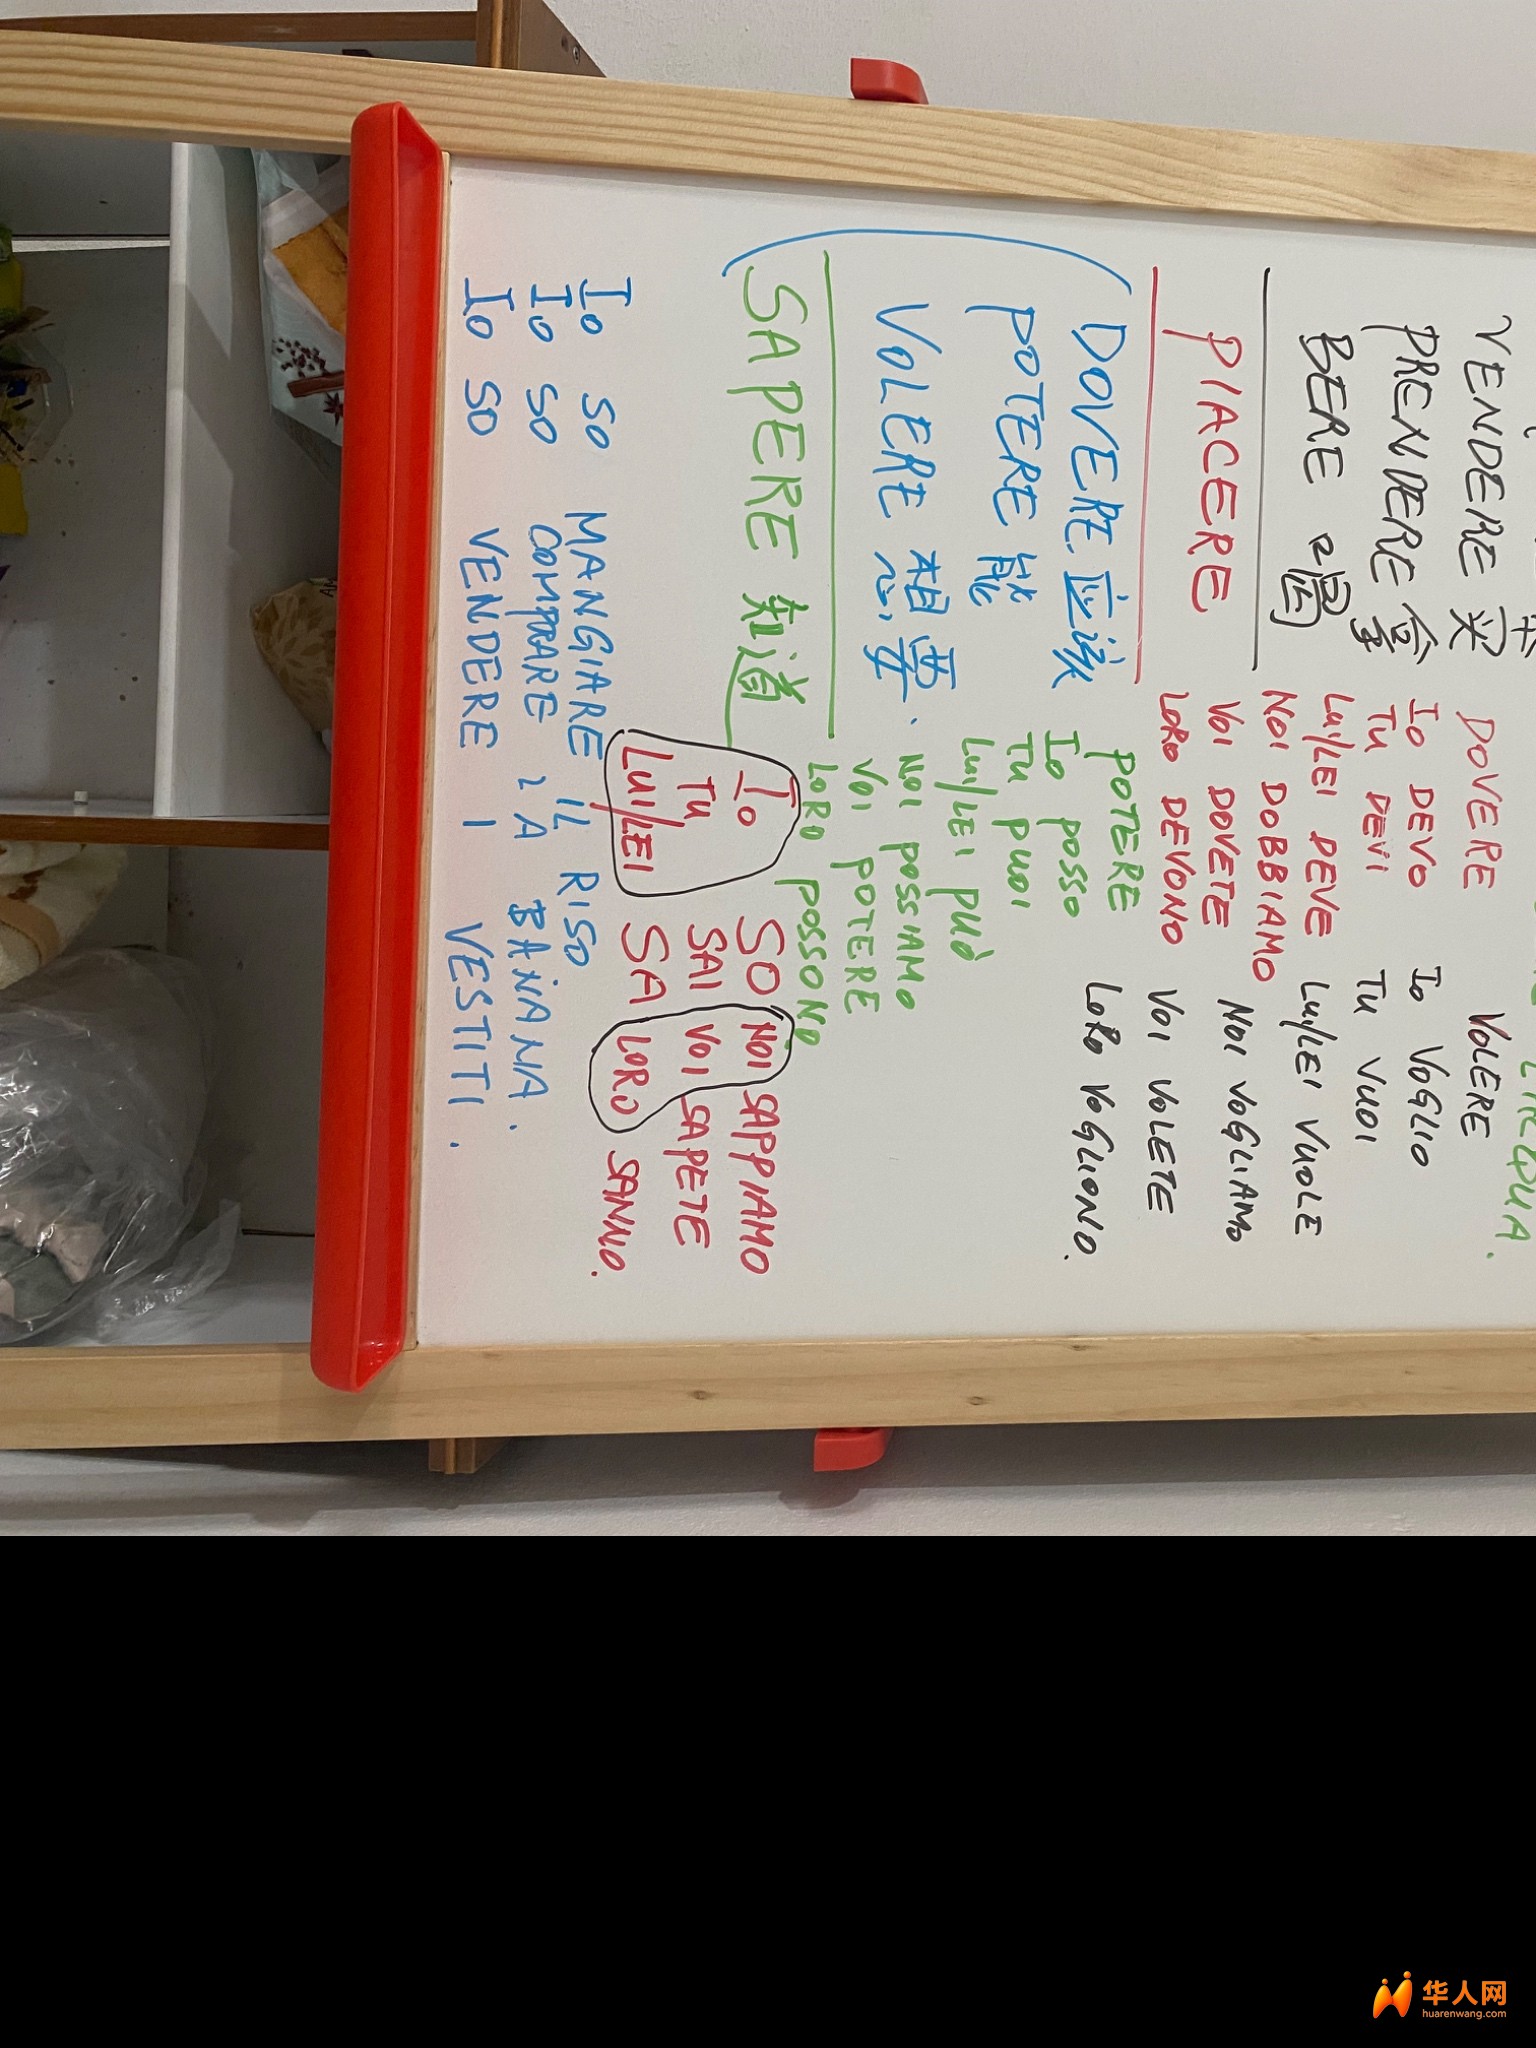 L'ACQUA.
VENDERE 卖
PRENDERE 拿
BERE 喝
PIACERE
DOVERE 应该
POTERE 能
VOLERE 想要.
SAPERE 知道
DOVERE
IO DEVO
TU DEVI
LUI/LEI DEVE
NOI DOBBIAMO
VOI DOVETE
LORO DEVONO
VOLERE
IO VOGLIO
TU VUOI
LUI/LEI VUOLE
NOI VOGLIAMO
VOI VOLETE
LORO VOGLIONO.
POTERE
IO POSSO
TU PUOI
LUI/LEI PUÒ
NOI POSSIAMO
VOI POTERE
LORO POSSONO
IO SO NOI SAPPIAMO
TU SAI VOI SAPETE
LUI/LEI SA LORO SANNO.
IO SO MANGIARE IL RISO
IO SO COMPRARE LA BANANA.
IO SO VENDERE I VESTITI.
华人网
huarenwang.com